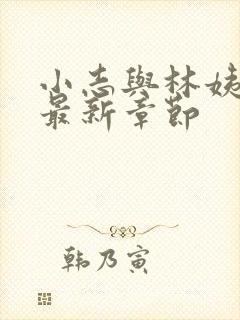 小志與林姨
最新章節
韩乃寅